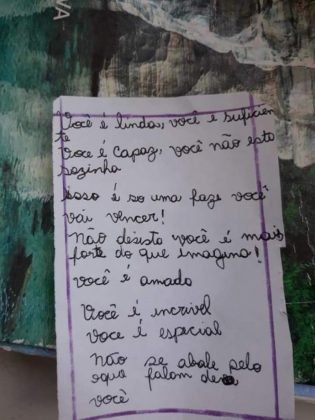 VA
Você é linda, você é suficien
te
Voce é capaz, você não esta
sozinha
isso é so uma faze você
vai vencer!
Não desista você é mais
forte do que imagina!
você é amado
Você é incrivel
voce é especial
Não se abale pelo
oque falam de
você